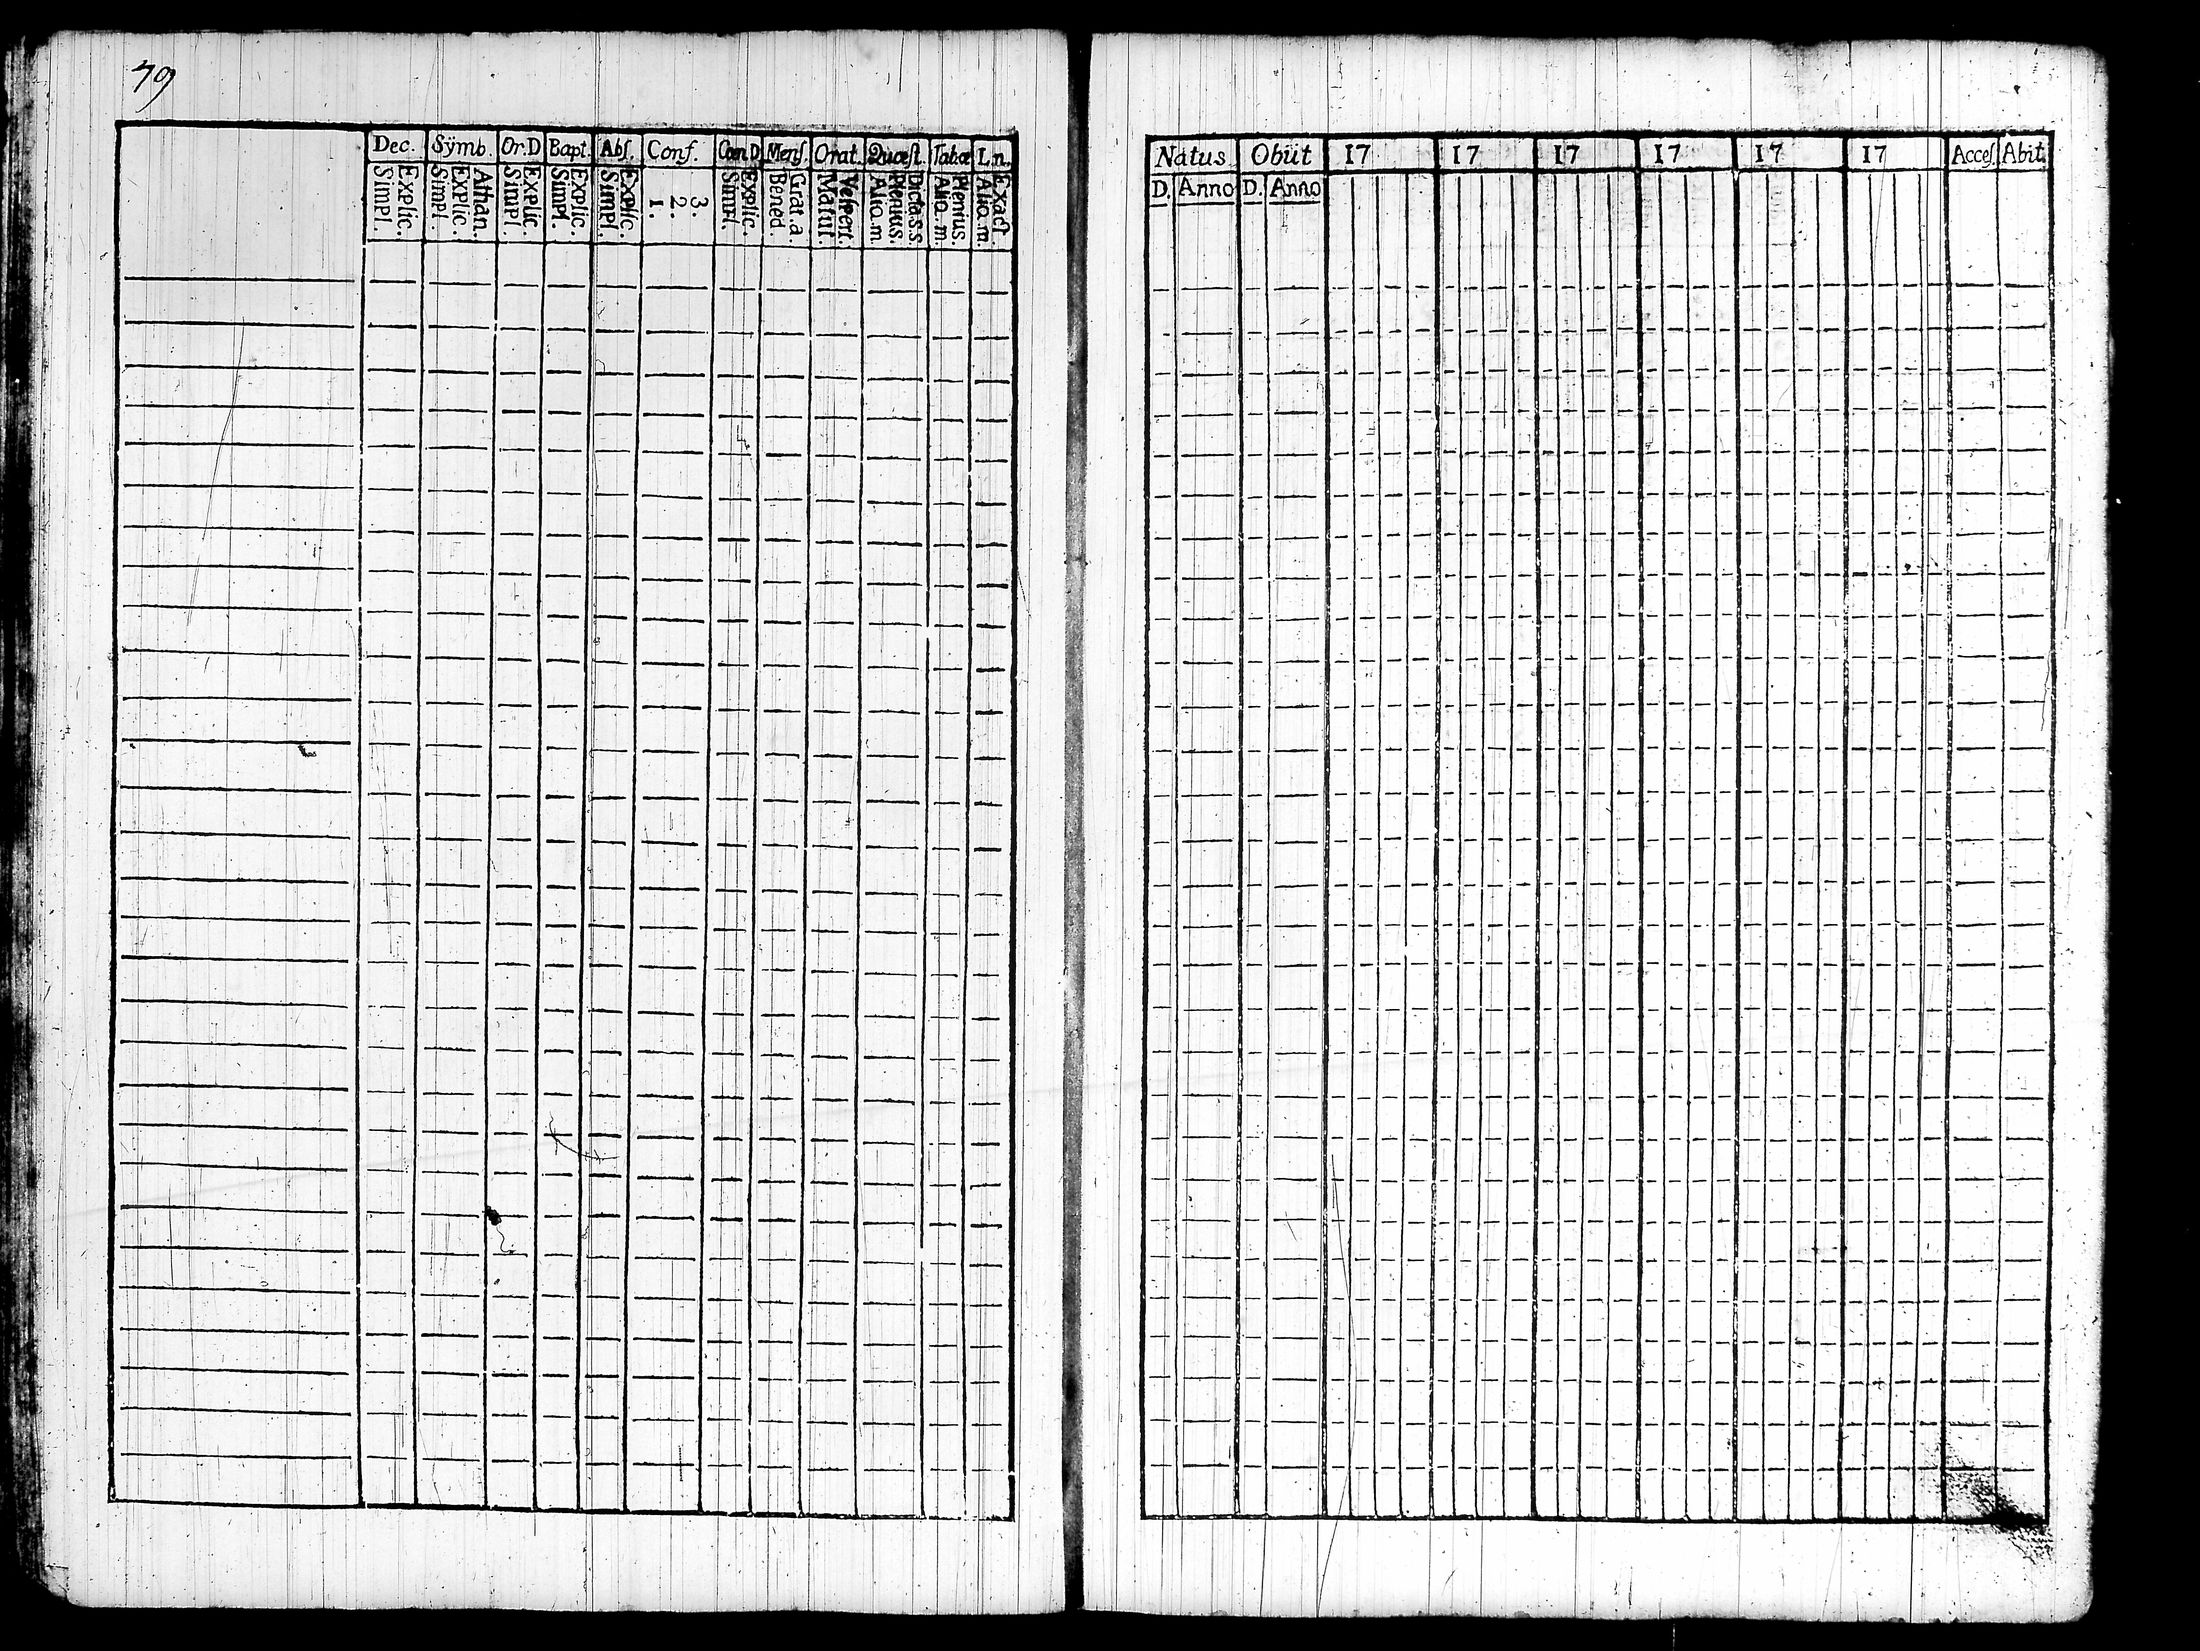 79
Dec. Sÿmb. Or.D Bapt. Abſ. Conf. Com D Menſ. Orat. Quæſt. Tabæ L.n.
Explic. Simpl.
Athan. Explic. Simpl.
Explic. Simpl.
Explic. Simpl.
Explic. Simpl.
3. 2. 1.
Explic. Simpl.
Grat. a. Bened.
Veſpert. Matut.
Dicta.s.s. Plenius. Alio.m.
Plenius. Alio.m.
Exact. Alio.m.
Natus Obiit 17 17 17 17 17 17 Acceſ. Abit.
D. Anno D. Anno